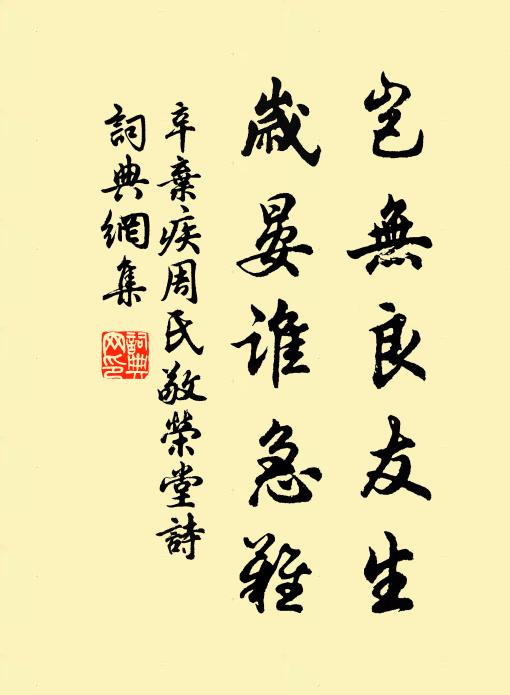 豈無良友生
歲晏誰急難
辛棄疾周氏敬榮堂詩
詞典網集
詞典網印